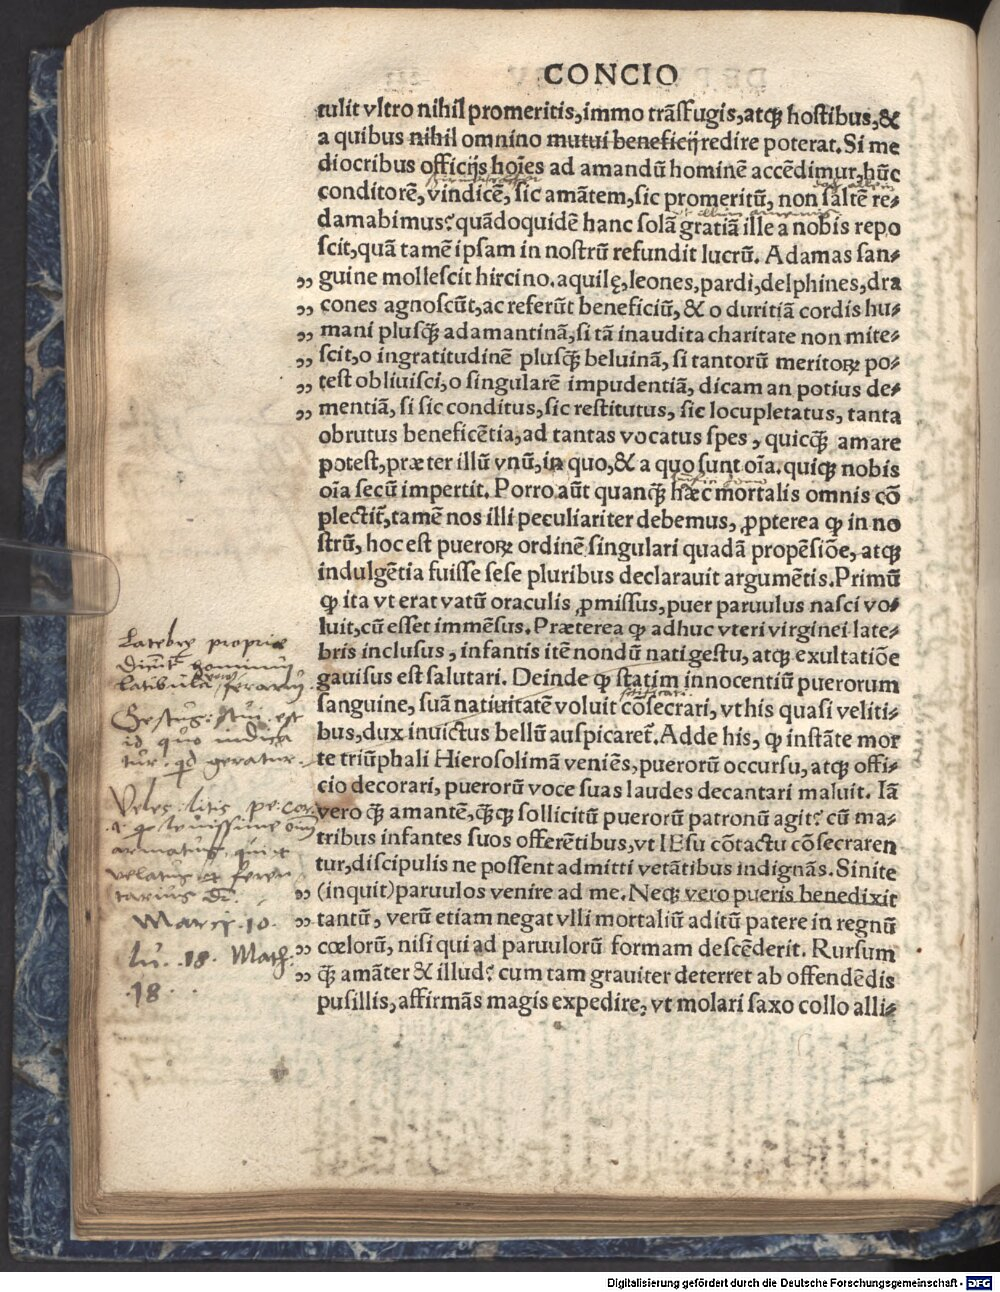 CONCIO
tulit vltro nihil promeritis, immo trãsfugis, atq; hostibus, &
a quibus nihil omnino mutui beneficij redire poterat. Si me
diocribus officijs hoĩes ad amandũ hominẽ accẽdimur, hũc
conditorẽ, vindicẽ, sic amãtem, sic promeritũ, non saltẽ re⸗
damabimus? quãdoquidẽ hanc solã gratiã ille a nobis repo
scit, quã tamẽ ipsam in nostrũ refundit lucrũ. Adamas san⸗
„ guine mollescit hircino. aquilę, leones, pardi, delphines, dra
„ cones agnoscũt, ac referũt beneficiũ, & o duritiã cordis hu⸗
„ mani plusq̃ adamantinã, si tã inaudita charitate non mite⸗
„ scit, o ingratitudinẽ plusq̃ beluinã, si tantorũ meritoꝝ po⸗
„ test obliuisci, o singularẽ impudentiã, dicam an potius de⸗
„ mentiã, si sic conditus, sic restitutus, sic locupletatus, tanta
obrutus beneficẽtia, ad tantas vocatus spes, quicq̃ amare
potest, præter illũ vnũ, in quo, & a quo sunt oĩa. quiq; nobis
oĩa secũ impertit. Porro aũt quanq̃ hæc mortalis omnis cõ
plectit̃, tamẽ nos illi peculiariter debemus, ꝓpterea ꝙ in no
strũ, hoc est pueroꝝ ordinẽ singulari quadã propẽsiõe, atq;
indulgẽtia fuisse sese pluribus declarauit argumẽtis. Primũ
ꝙ ita vt erat vatũ oraculis ꝓmissus, puer paruulus nasci vo⸗
luit, cũ esset immẽsus. Præterea ꝙ adhuc vteri virginei late⸗
bris inclusus, infantis itẽ nondũ nati gestu, atq; exultatiõe
gauisus est salutari. Deinde ꝙ statim innocentiũ puerorum
sanguine, suã natiuitatẽ voluit cõsecrari, vt his quasi veliti⸗
bus, dux inuictus bellũ auspicaret̃. Adde his, ꝙ instãte mor
te triũphali Hierosolimã veniẽs, puerorũ occursu, atq; offi⸗
cio decorari, puerorũ voce suas laudes decantari maluit. Iã
vero q̃ amantẽ, q̃q; sollicitũ puerorũ patronũ agit? cũ ma⸗
tribus infantes suos offerẽtibus, vt IEsu cõtactu cõsecraren
tur, discipulis ne possent admitti vetãtibus indignãs. Sinite
„ (inquit) paruulos venire ad me. Neq; vero pueris benedixit
„ tantũ, verũ etiam negat vlli mortaliũ aditũ patere in regnũ
„ cœlorũ, nisi qui ad paruulorũ formam descẽderit. Rursum
„ q̃ amãter & illud? cum tam grauiter deterret ab offendẽdis
pusillis, affirmãs magis expedire, vt molari saxo collo alli⸗
Latebrę proprie
dicũt hominũ
latibula ferarũ
Gestus: tui est
id quo indica
tur qd geratur
Veles: litis pe: cor
leuissime
armatus,
velatus et feren
tarius
Marci .10.
Lu. .18. Math.
.18.
Digitalisierung gefördert durch die Deutsche Forschungsgemeinschaft - DFG